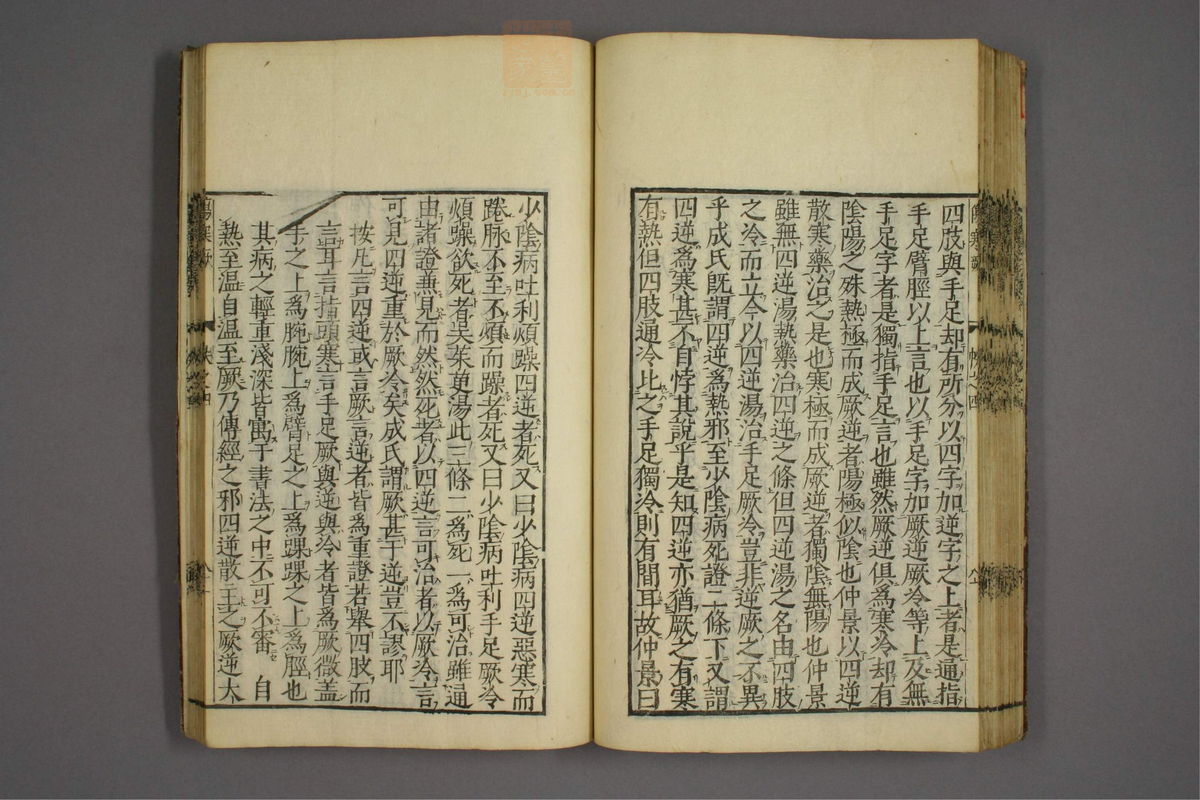 四肢與手足却有所分以四字加逆字之上者是通指
手足臂脛以上言也以手足字加厥逆厥冷等上及無
手足字者是獨指手足言也雖然厥逆俱為寒冷却有
陰陽之殊熱極而成厥逆者陽極似陰也仲景以四逆
散寒藥治之是也寒極而成厥逆者獨陰無陽也仲景
雖無四逆湯熱藥治四逆之條但四逆湯之名由四肢
之冷而立今以四逆湯治手足厥冷豈非逆厥之不異
乎成氏既謂四逆為熱邪至少陰病死證二條下又謂
四逆為寒甚不自悖其說乎是知四逆亦猶厥之有寒
有熱但四肢通冷比之手足獨冷則有間耳故仲景曰
少陰病吐利煩躁四逆者死又曰少陰病四逆惡寒而
踡脉不至不煩而躁者死又曰少陰病吐利手足厥冷
煩躁欲死者吴茱萸湯此三條二為死一為可治雖通
由諸證兼見而然然死者以四逆言可治者以厥冷言
可見四逆重於厥冷矣成氏謂厥甚于逆豈不謬耶
按凡言四逆或言厥言逆者皆為重證若舉四肢而
言耳言指頭寒言手足厥與逆與冷者皆為厥微盖
手之上為腕腕上為臂足之上為踝踝之上為脛也
其病之輕重淺深皆寓于書法之中不可不審　自
熱至温自温至厥乃傳經之邪四逆散主之厥逆大